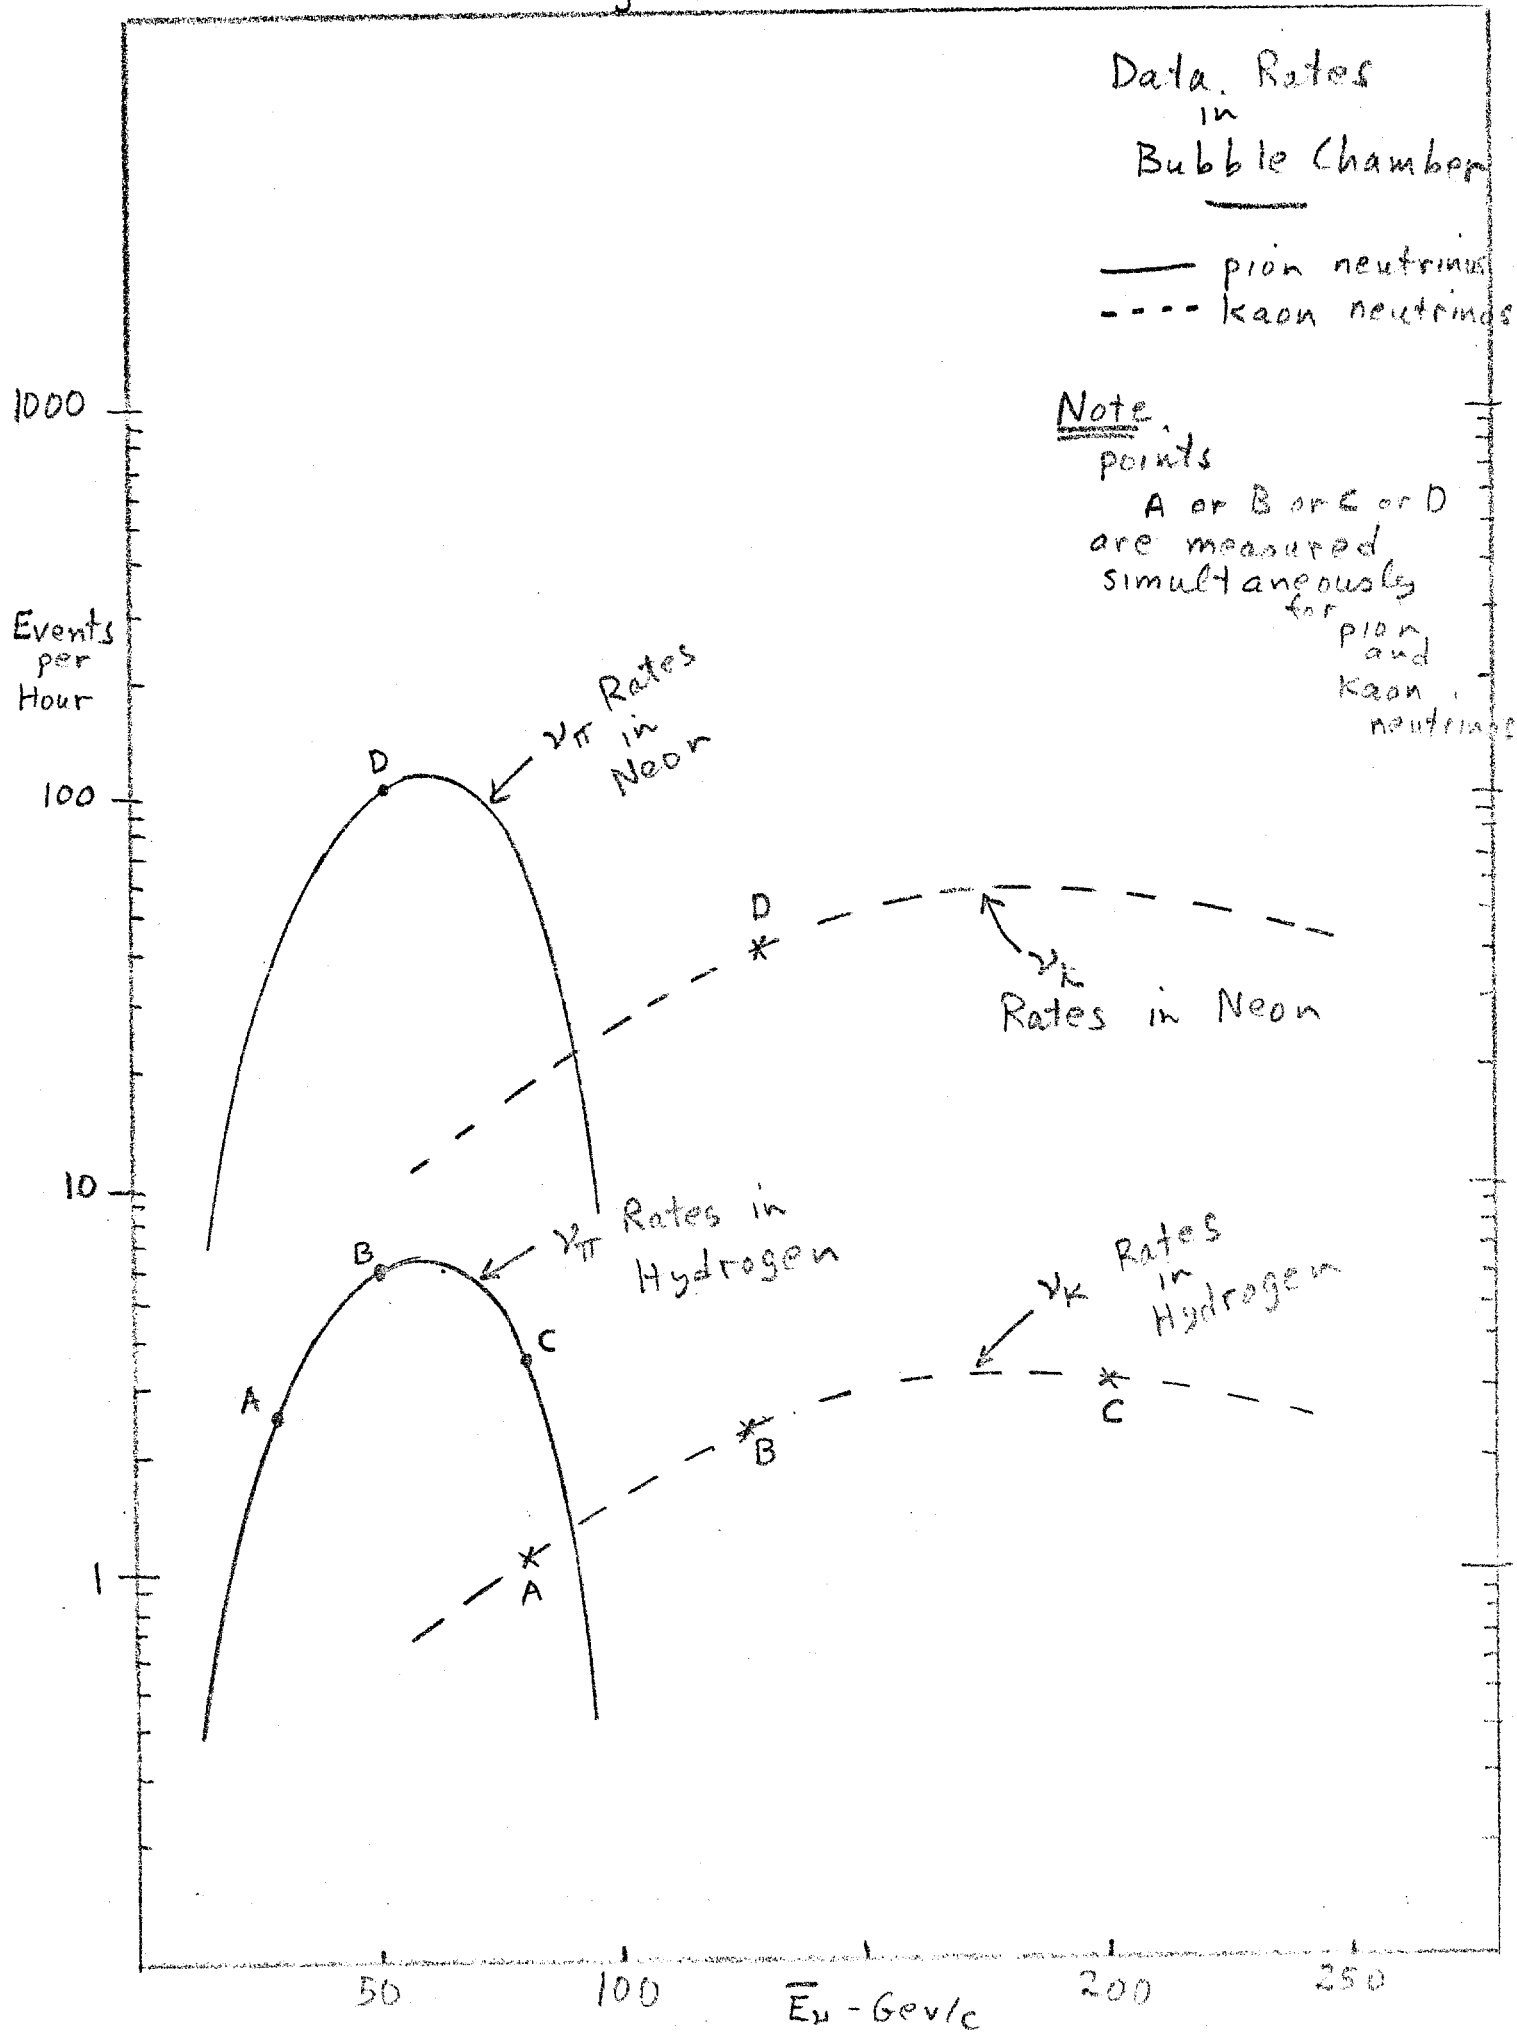 Data Rates
in
Bubble Chamber
pion neutrinos
kaon neutrinos
Note
points
A or B or C or D
are measured
simultaneously
for
pion
and
kaon
neutrinos
1000
Events
per
Hour
100
10
1
D
νπ Rates
in
Neon
D
νk
Rates in Neon
B
νπ Rates in
Hydrogen
A
C
νK Rates
in
Hydrogen
B
C
A
50
100
200
250
E̅ν - Gev/c